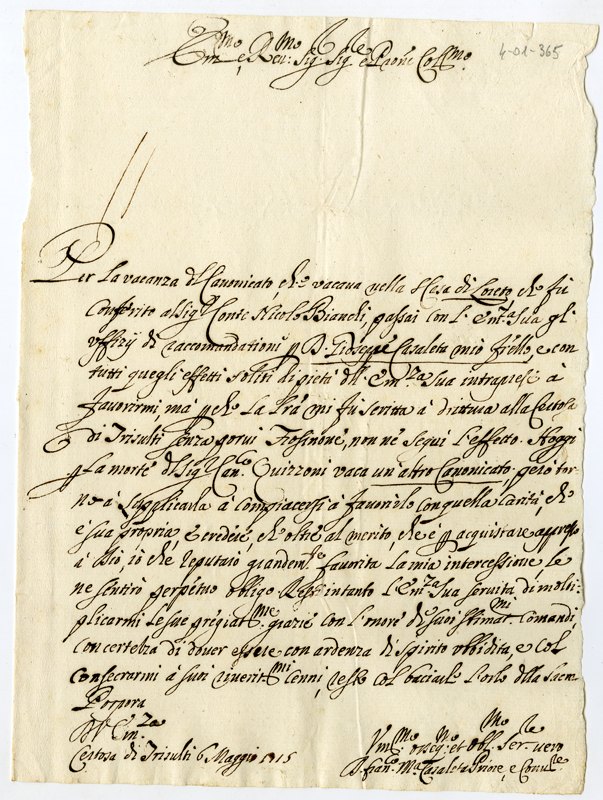 Em.mo e Reu: Sig. Sig.re e Prōne Coll.mo
4-01-365
Per la vacanza d'l Canonicato, che vacaua nella S. Casa di Loreto, che fù
Conferito al Sig.r Conte Nicolo Bianchi, passai con l'Em.za Sua gl'
uffizij di raccomandationi p D. Gioseppe Casaleta mio fr̃ello, e con
tutti quegli effetti soliti di pietà d'll'Em.za Sua intraprese à
fauorirmi, mà p che La Prã mi fù scritta à drittura alla Certosa
di Trisulti senza porui Frosinone, non ne seguì l'effetto. Hoggi
p La morte d'l Sig.r Can.co Quizzoni vaca un'altro Canonicato, però tor-
no à supplicarla à compiacersi à fauorirlo con quella Carità, che
è sua propria, e creda che oltre al merito, che è p acquistare appresso
à Dio, io che reputarò grandem.te fauorita La mia intercessione, Le
ne sentirò perpetuo obligo Resti intanto l'Em.za Sua seruita di molti-
plicarmi Le sue pregiat.me grazie con l'honore de suoi stimat.mi Comandi,
con certezza di douer essere con ardenza di spirito ubbidita, e col
consecrarmi à suoi riuerit.mi Cenni, resto col baciarLe L'orlo d'lla Sacra
Porpora
D. V. Em.za
Certosa di Trisulti 6 Maggio 1715
Vm.mo osseq.mo et Obl.mo Ser.re uero
D. Fran.co M.a Casaleta Priore, e Conu.le